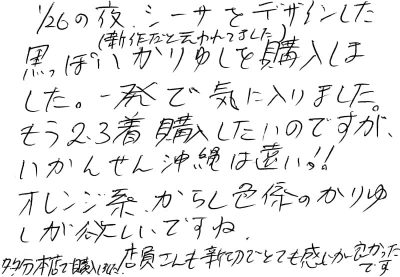 1/26の夜、シーサをデザインした
(新作だと云われてました)
黒っぽいかりゆしを購入しま
した。一発で気に入りました。
もう2.3着購入したいのですが、
いかんせん沖縄は遠いっ!!
オレンジ系、からし色係のかりゆ
しが欲しいですね。
多分本店で購入
店員さんも親切でとても感じが良かった
です